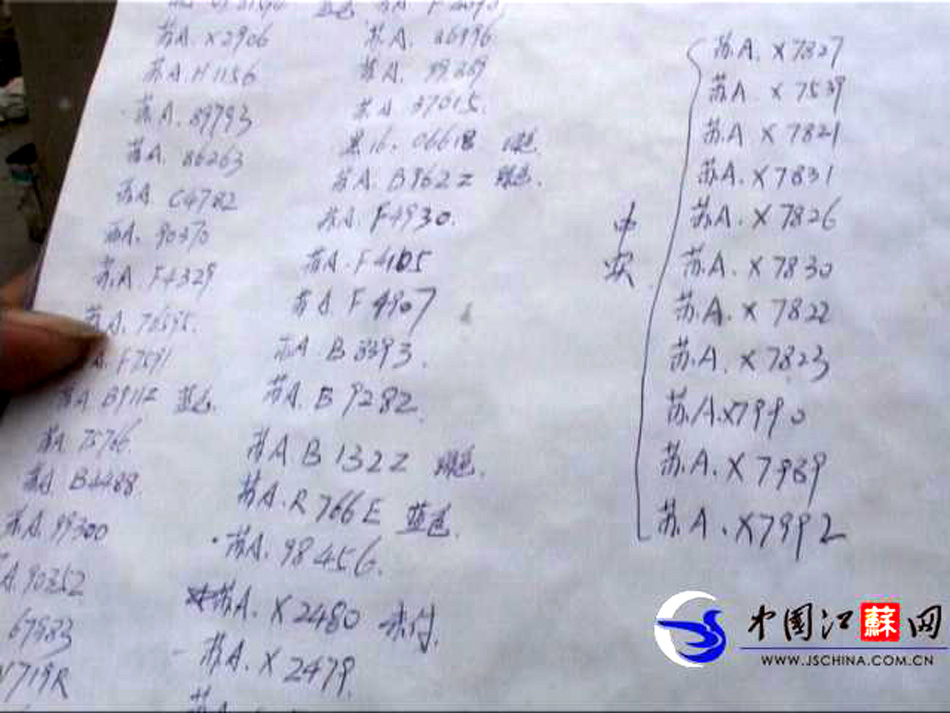 苏A.X2906
苏A.H1156
苏A.89793
苏A.86263
苏A.C4782
苏A.90370
苏A.F4329
苏A.76595.
A.F7591
苏A B911Z 蓝色.
苏A.75766
苏A.B4488.
苏A.99300
A.90352
67983
719R
苏A.86996
苏A.99369
苏A 37015.
06618 绿色
苏A.B962Z 绿色.
苏A.F4930.
苏A.F4105
苏A.F4907
苏A.B8393.
苏A.B9282.
苏A B132Z 绿色.
苏A.R766E 蓝色.
苏A.98456.
苏A.X2480 未付.
苏A.X2479.
中
实
苏A.X7827
苏A.X7539
苏A X7821
苏A.X7831
苏A.X7826
苏A.X7830
苏A.X7822
苏A.X7823
苏A.X7990
苏.A.X7989
苏A.X7992
中国江蘇网
WWW.JSCHINA.COM.CN